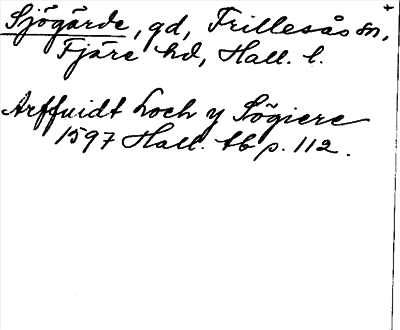 Sjögärde, gd, Frillesås sn,
Fjäre hd, Hall. l.
Arffuidt Loch y Sögiere
1597 Hall. tb p. 112.